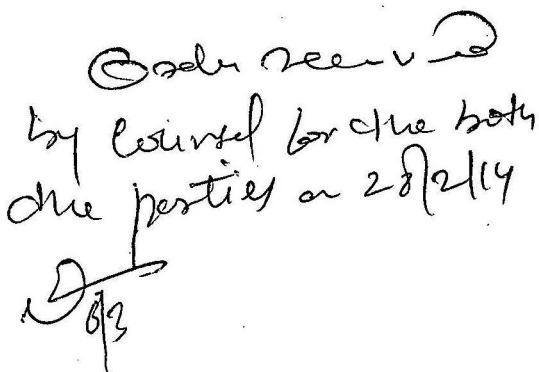 Order received
by counsel for the both
the parties on 28/2/14
6/3